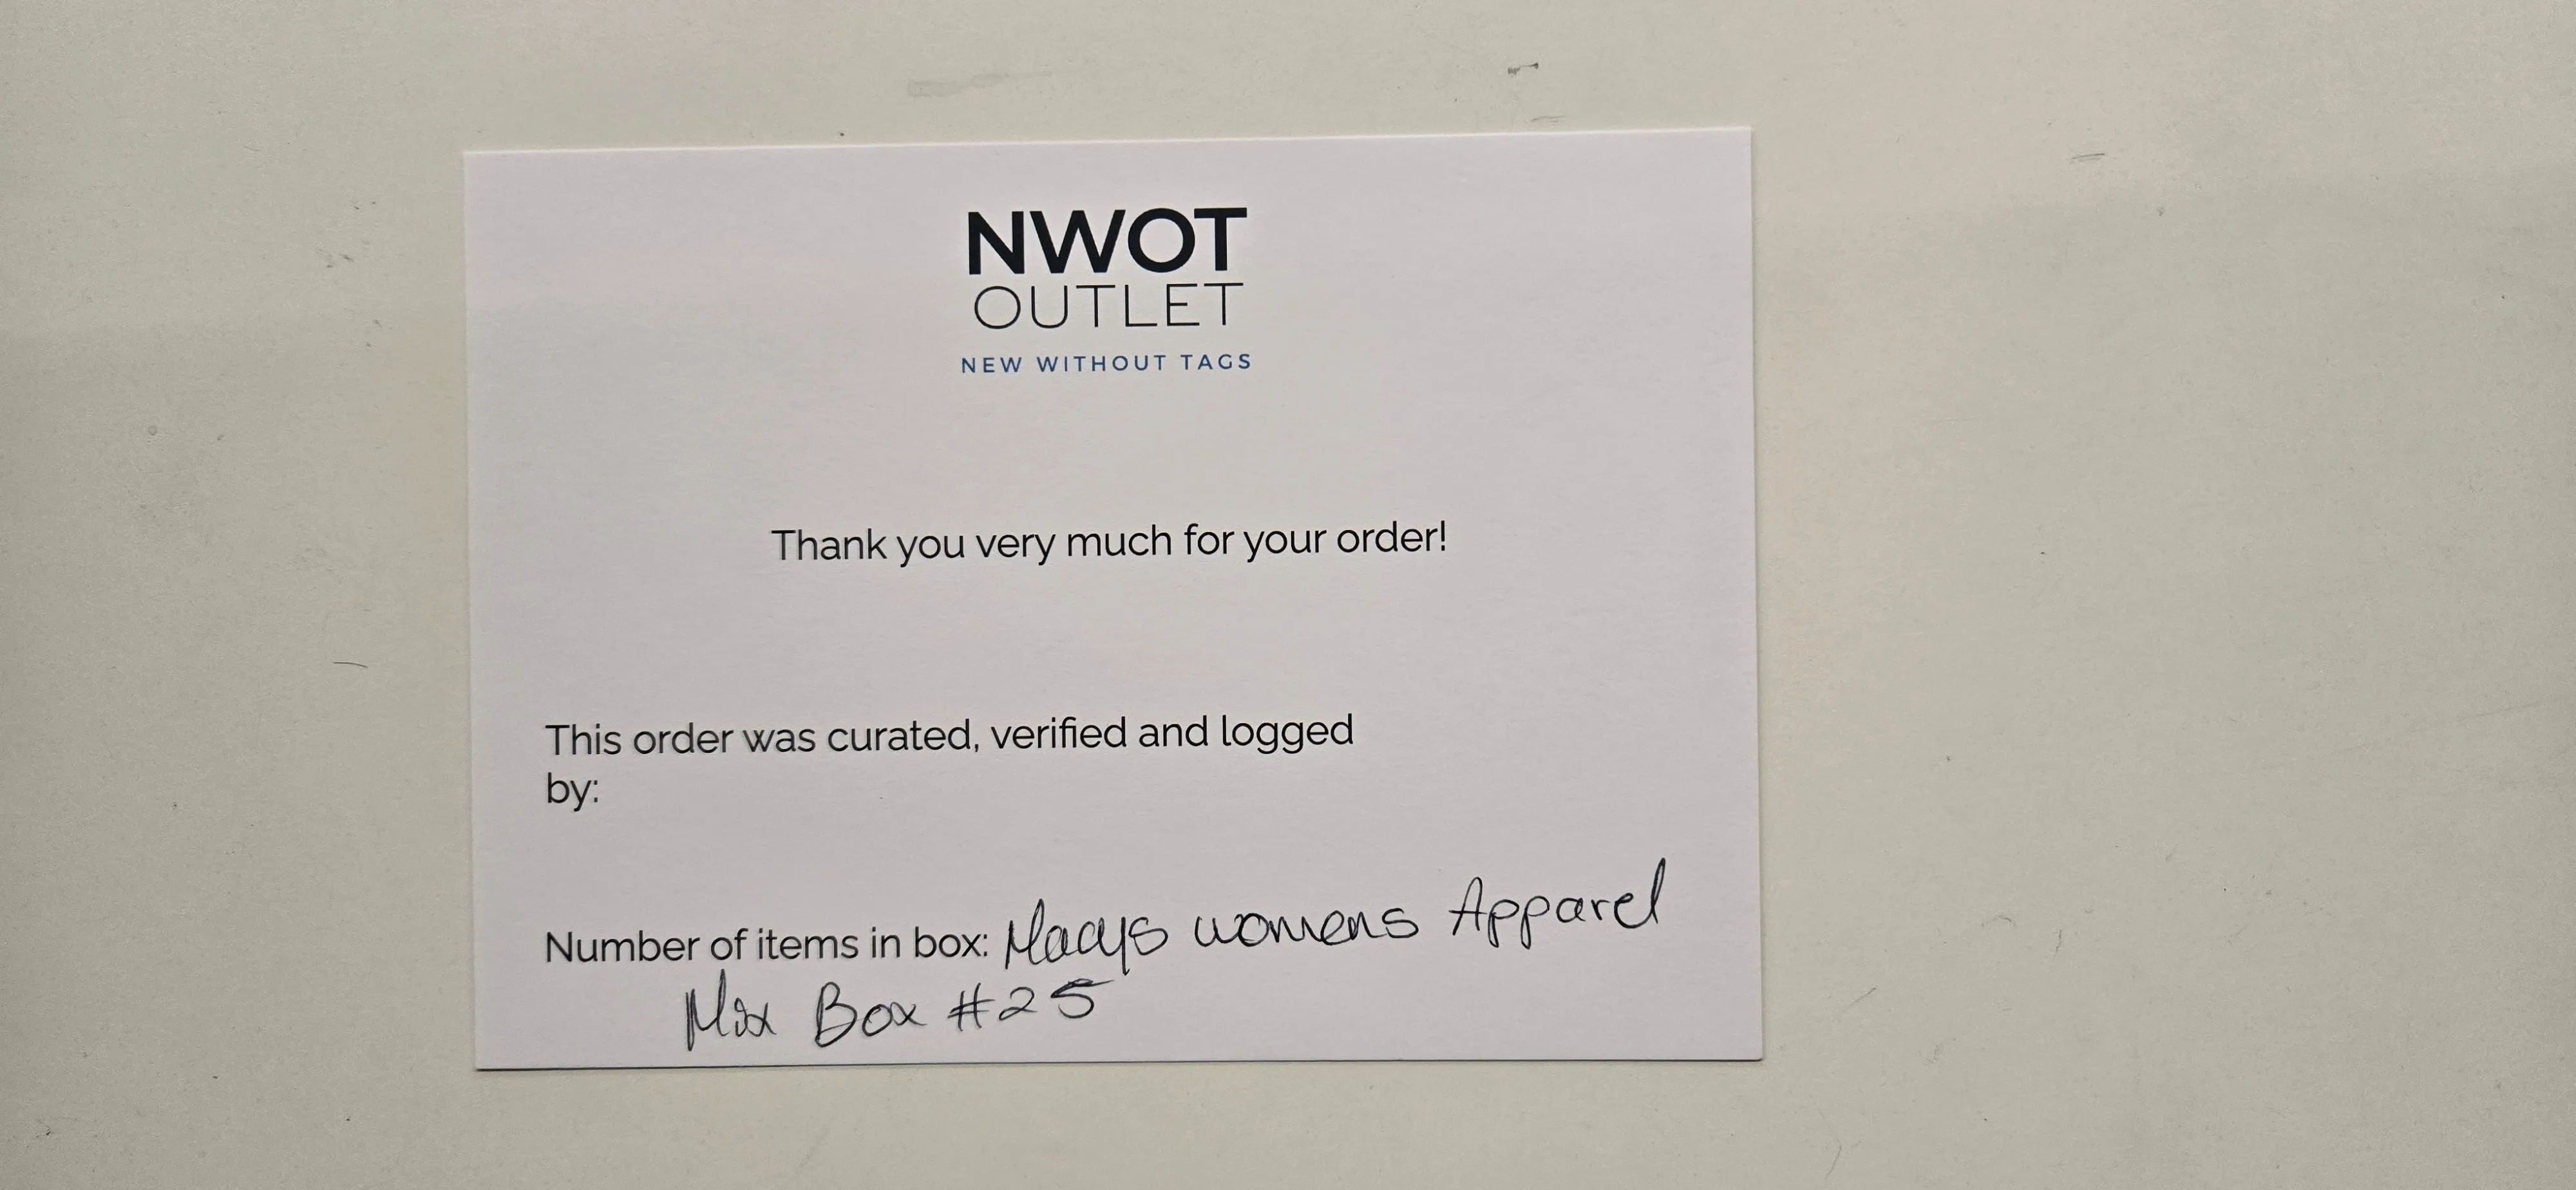 NWOT
OUTLET
NEW WITHOUT TAGS
Thank you very much for your order!
This order was curated, verified and logged
by:
Number of items in box: Macys womens Apparel
Mix Box #25